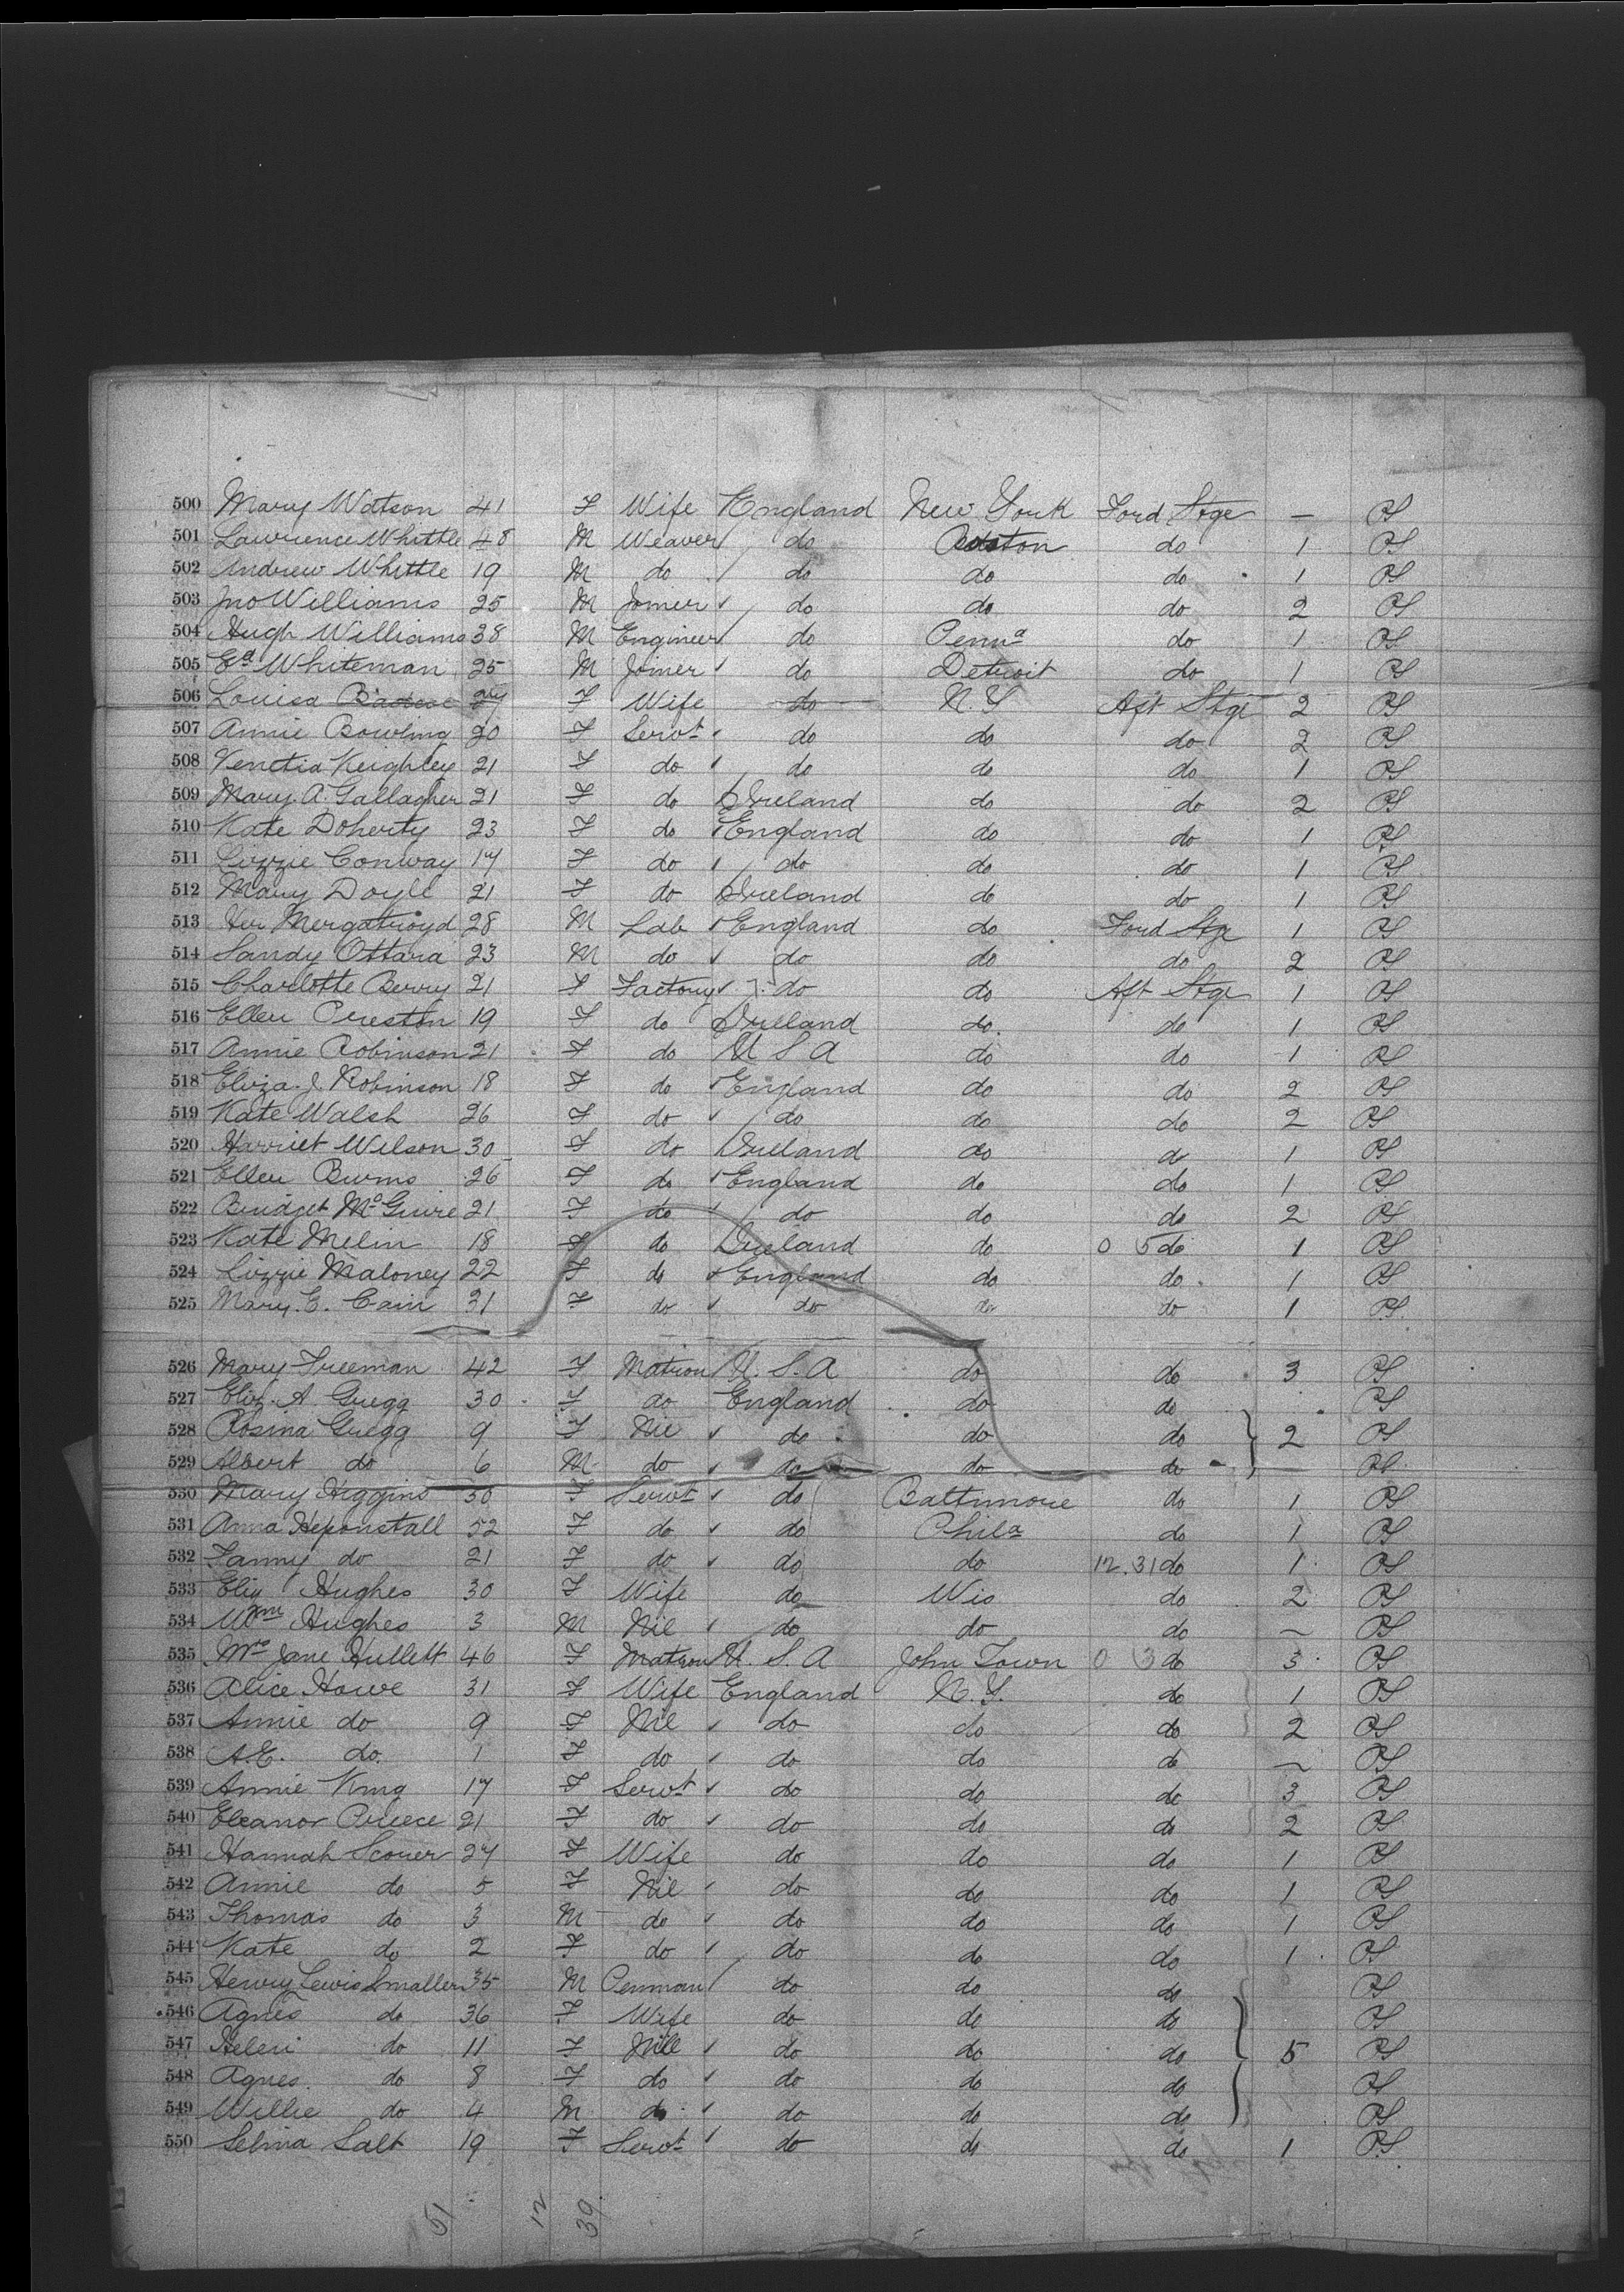 500 Mary Watson 41 F Wife England New York Ford Stge — PS
501 Lawrence Whittle 48 M Weaver do Boston do 1 PS
502 Andrew Whittle 19 M do do do do 1 PS
503 Jno Williams 25 M Joiner do do do 2 PS
504 Hugh Williams 38 M Engineer do Penna do 1 PS
505 Ed Whiteman 25 M Joiner do Detroit do 1 PS
506 Louisa F Wife do N.Y Aft Stge 2 PS
507 Annie Bowling 20 F Servt do do do 2 PS
508 Venetia Keighley 21 F do do do do 1 PS
509 Mary A. Gallagher 21 F do Ireland do do 2 PS
510 Kate Doherty 23 F do England do do 1 PS
511 Lizzie Conway 17 F do do do do 1 PS
512 Mary Doyle 21 F do Ireland do do 1 PS
513 Mergatroyd 28 M Lab England do Ford Stge 1 PS
514 Sandy Ottara 23 M do do do do 2 PS
515 Charlotte Berry 21 F Factory do do Aft Stge 1 PS
516 Ellen Preston 19 F do Ireland do do 1 PS
517 Annie Robinson 21 F do U S A do do 1 PS
518 Eliza. J. Robinson 18 F do England do do 2 PS
519 Kate Walsh 26 F do do do do 2 PS
520 Harriet Wilson 30 F do Ireland do do 1 PS
521 Ellen Burns 26 F do England do do 1 PS
522 Bridget McGuire 21 F do do do do 2 PS
523 Kate 18 F do Ireland do 0 5 do 1 PS
524 Lizzie Maloney 22 F do England do do 1 PS
525 Mary. E. Cain 31 F do do do do 1 PS
526 Mary Freeman 42 F Matron U. S. A do do 3 PS
527 Eliz. A. Gregg 30 F do England do do PS
528 Rosina Gregg 9 F Nil do do do 2 PS
529 Albert do 6 M do do do do PS
530 Mary Higgins 30 F Servt do Baltimore do 1 PS
531 Anna Heponstall 52 F do do Phila do 1 PS
532 Fanny do 21 F do do do 12.31 do 1 PS
533 Eliz Hughes 30 F Wife do Wis do 2 PS
534 Wm Hughes 3 M Nil do do do — PS
535 Mrs Jane Hullett 46 F Matron U. S. A John Town 0 3 do 3 PS
536 Alice Howe 31 F Wife England N. Y. do 1 PS
537 Annie do 9 F Nil do do do 2 PS
538 A.E. do 1 F do do do do — PS
539 Annie King 17 F Servt do do do 3 PS
540 Eleanor Preece 21 F do do do do 2 PS
541 Hannah Scorer 27 F Wife do do do 1 PS
542 Annie do 5 F Nil do do do 1 PS
543 Thomas do 3 M do do do do 1 PS
544 Kate do 2 F do do do do 1 PS
545 Henry Lewis Smaller 35 M Penman do do do PS
546 Agnes do 36 F Wife do do do PS
547 Helen do 11 F Nil do do do 5 PS
548 Agnes do 8 F do do do do PS
549 Willie do 4 M do do do do PS
550 Selina Salt 19 F Servt do do do 1 PS
51 12 39